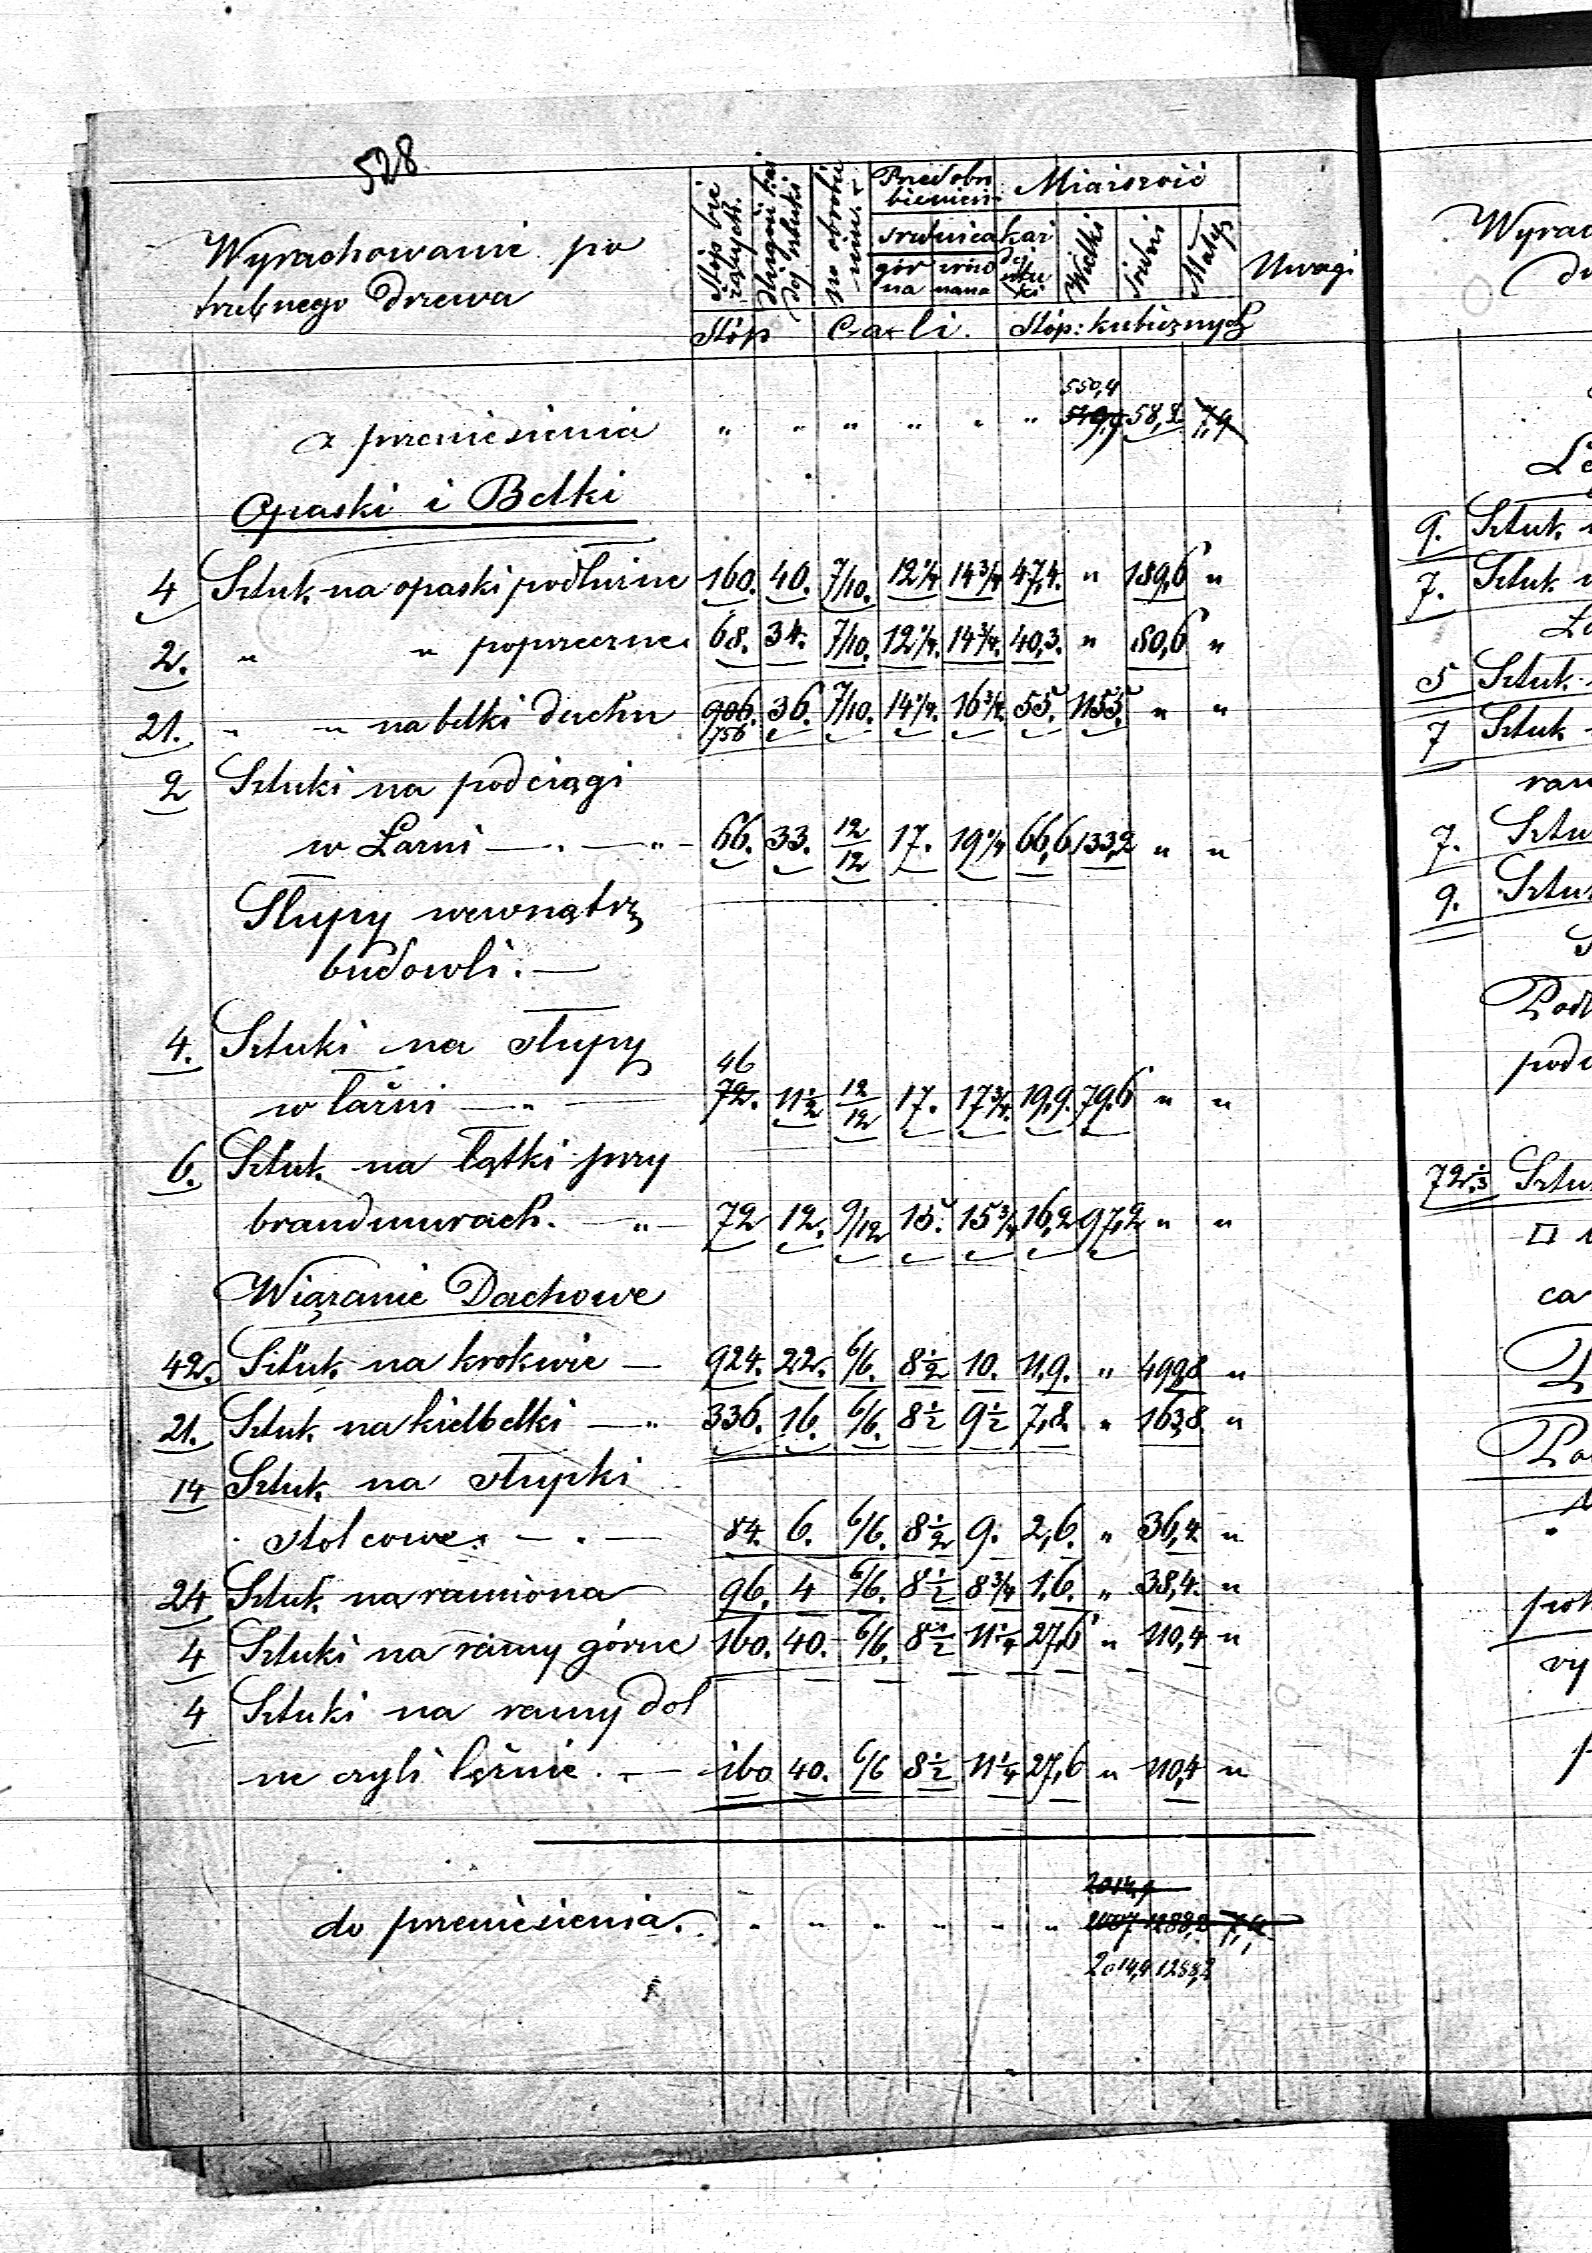 528
Wyrachowanie po
trzebnego drzewa
Stóp bie
żących.
długość każ
dej sztuki
po obrobie
niu.
Przed obro
bieniem
średnica
gór
na
śred
nana
każ
dej
sztu
ki
Miąższość
Wielki
średni
Mały
Uwagi
Stóp Cali. Stóp: kubicznych
550,4
z przeniesienia " " " " " " 519,9 58,2 7,9
Opaski i Belki
4 Sztuk. na opaski podłużne 160. 40. 7/10. 12 1/4 14 3/4 47,4. " 189,6 "
2. " " poprzeczne 68. 34. 7/10. 12 1/4. 14 3/4. 40,3. " 80,6 "
21. " " na belki dachu 906. 36. 7/10. 14 1/4. 16 3/4. 55. 1155. " "
756
2 Sztuki na podciągi
w Łaźni — . — " - 66. 33. 12/12 17. 19 1/4 66,6 133,2 " "
Słupy wewnątrz
budowli. —
4. Sztuki na słupy
46
w łaźni — " — 72. 11 1/2 12/12 17. 17 3/4. 19,9. 79,6 " "
6. Sztuk. na łątki przy
brandmurach. — " — 72 12. 9/12 15. 15 3/4 16,2 97,2 " "
Wiązanie Dachowe
42. Sztuk. na krokwie — 924. 22. 6/6. 8 1/2 10. 11,9. " 499,8 "
21. Sztuk. na kielbelki — " 336. 16. 6/6. 8 1/2 9 1/2 7,8. " 163,8. "
14 Sztuk. na słupki
stolcowe. — . — 84. 6. 6/6. 8 1/2 9. 2,6. " 36,4. "
24 Sztuk. na ramiona 96. 4 6/6. 8 1/2 8 3/4 1,6. " 38,4. "
4 Sztuki na ramy górne 160. 40. 6/6. 8 1/2 11 1/4 27,6 " 110,4 "
4 Sztuki na ramy dol
ne czyli leżnie . — 160 40. 6/6 8 1/2 11 1/4 27,6 " 110,4 "
2014,9
do przeniesienia. " " " " " " 1288,2 7,9
2014,9 1288,2
Wyrac
9. Sztuk.
7. Sztuk
5 Sztuk.
7 Sztuk
7. Sztu
9. Sztu
72 1/3 Sztu
ca